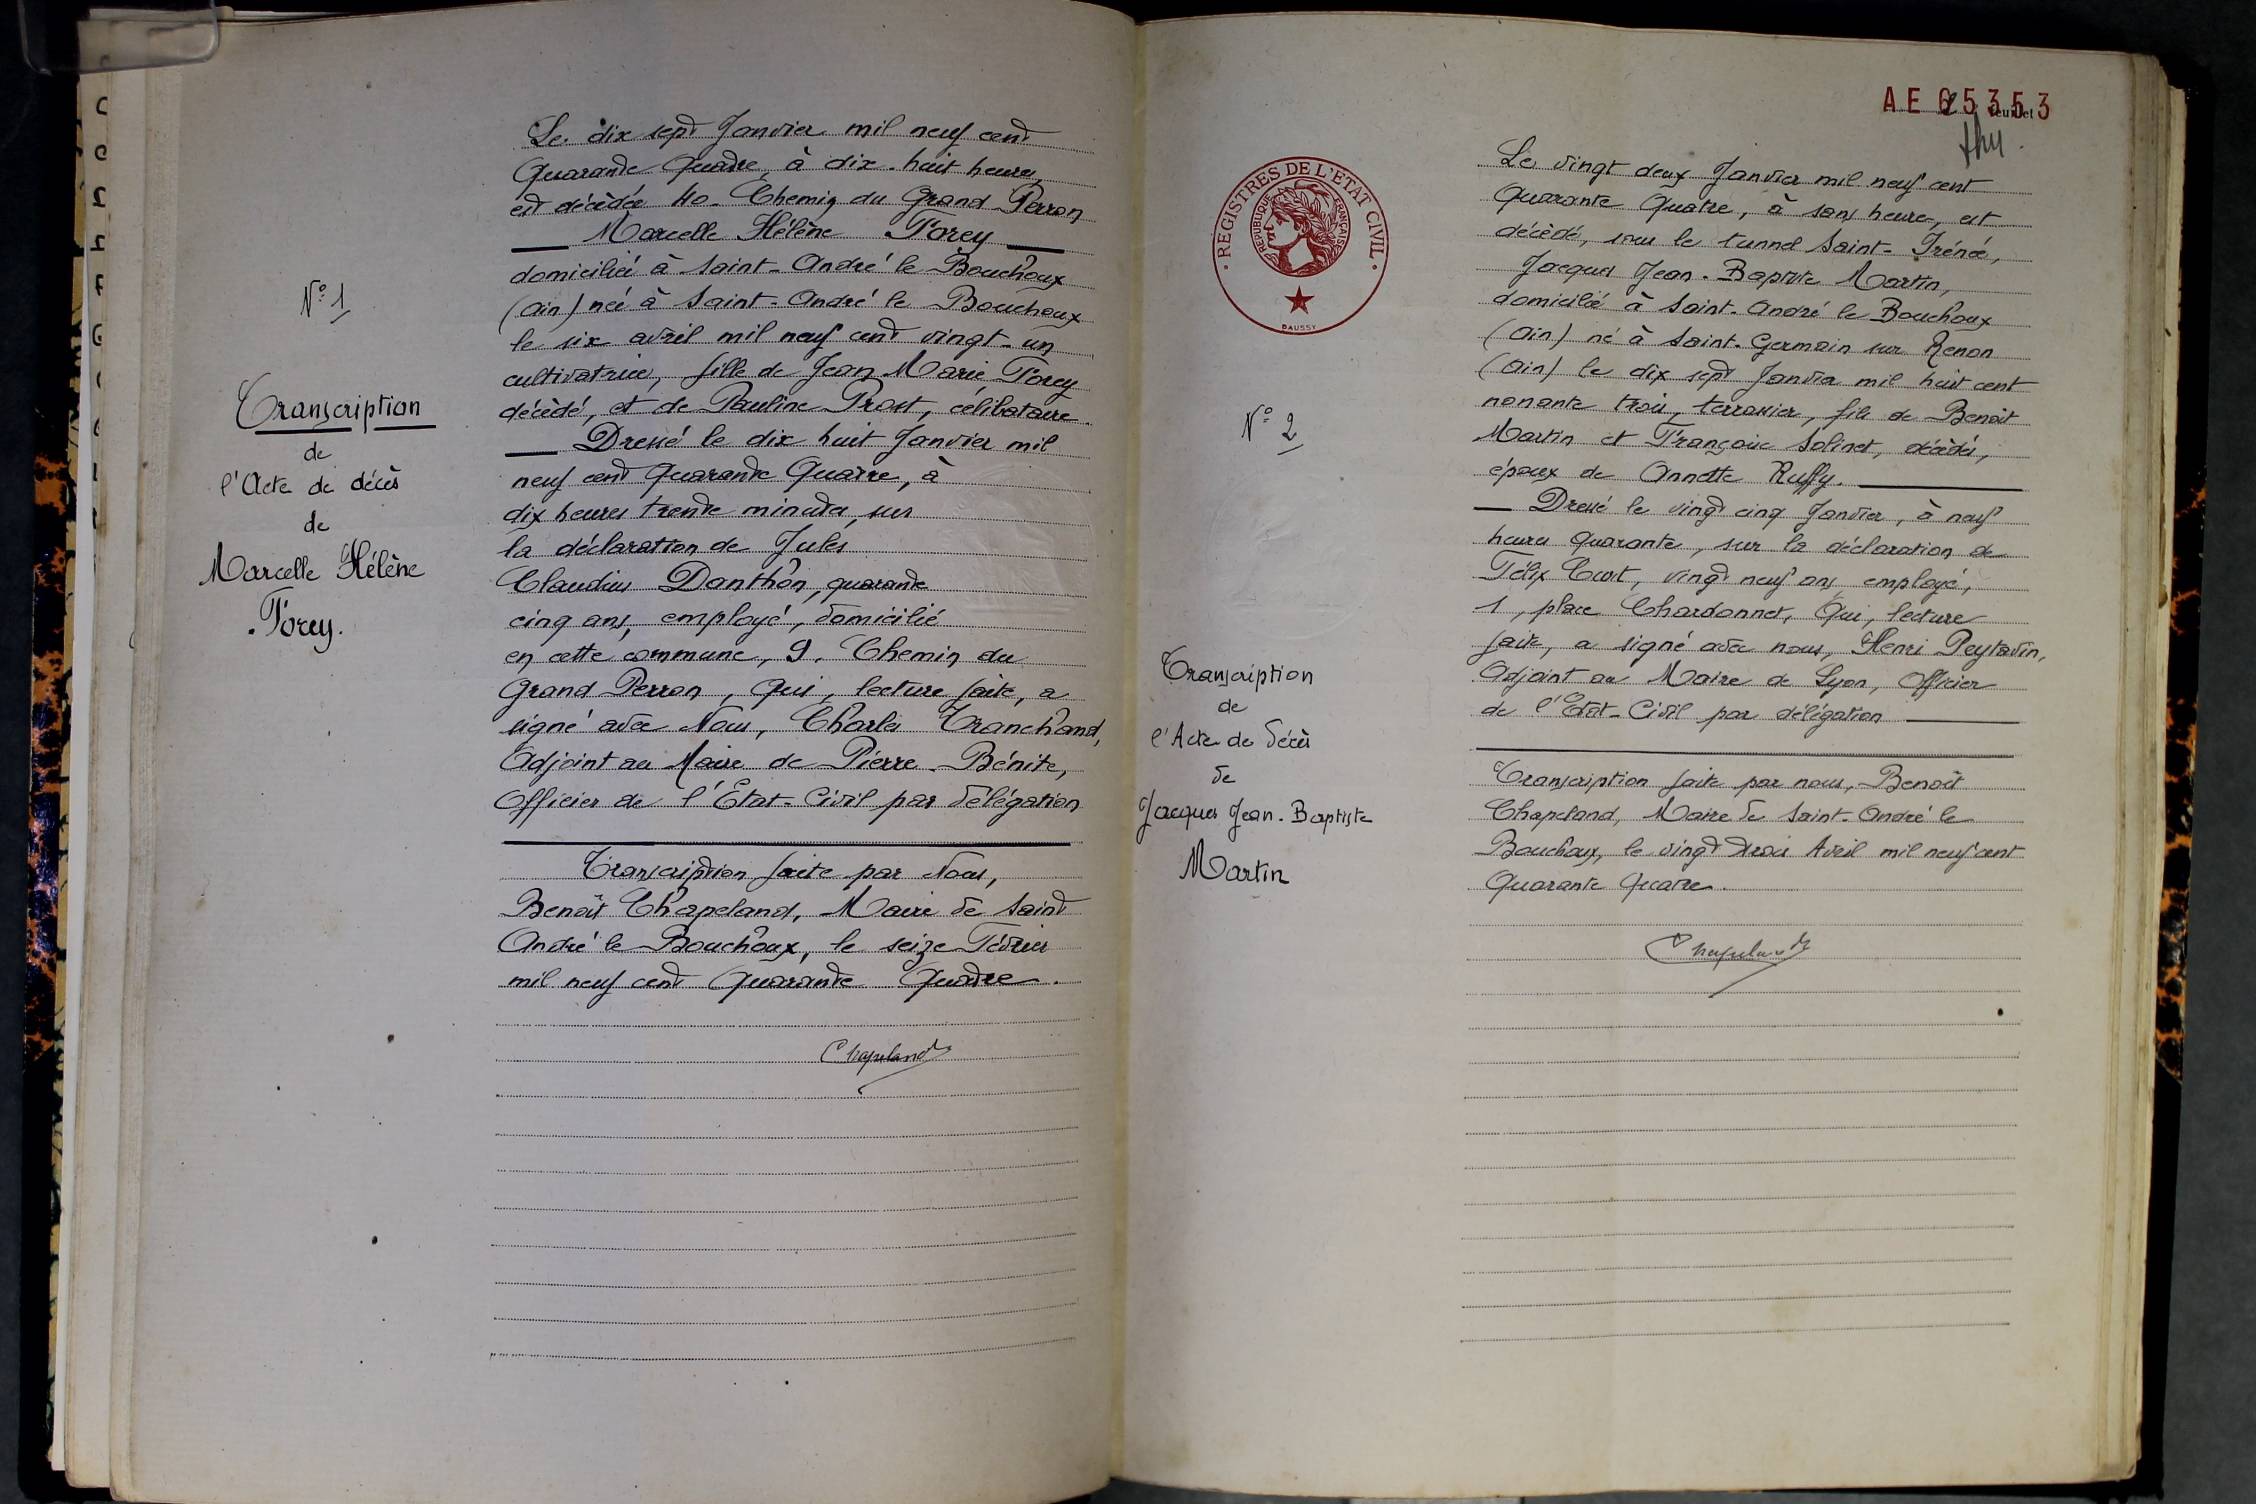 N° 1
Transcription
de
l'Acte de décès
de
Marcelle Hélène
Forey.
Le dix sept Janvier mil neuf cent
Quarante Quatre, à dix-huit heures,
est décédée 40 Chemin du Grand Perron
Marcelle Hélène Forey
domiciliée à Saint-André le Bouchoux
(Ain) née à Saint-André le Bouchoux
le six avril mil neuf cent vingt-un
cultivatrice, fille de Jean Marie Forey
décédé, et de Pauline Prost, célibataire.
Dressé le dix huit Janvier mil
neuf cent Quarante Quatre, à
dix heures trente minutes, sur
la déclaration de Jules
Claudius Danthon, quarante
cinq ans, employé, domicilié
en cette commune, 9, Chemin du
Grand Perron, Qui, lecture faite, a
signé avec Nous, Charles Tranchand,
Adjoint au Maire de Pierre-Bénite,
Officier de l'Etat-Civil par délégation
Transcription faite par Nous,
Benoît Chapeland, Maire de Saint
André le Bouchoux, le seize Février
mil neuf cent Quarante Quatre.
Chapeland
AE 65353
feuillet
REGISTRES DE L'ETAT CIVIL
REPUBLIQUE FRANÇAISE
DAUSSY
N° 2
Transcription
de
l'Acte de décès
de
Jacques Jean-Baptiste
Martin
Le vingt deux Janvier mil neuf cent
Quarante Quatre, à sans heure, est
décédé, sous le tunnel Saint-Irénée,
Jacques Jean-Baptiste Martin,
domicilié à Saint-André le Bouchoux
(Ain) né à Saint-Germain sur Renon
(Ain) le dix sept Janvier mil huit cent
nonante trois, terrassier, fils de Benoît
Martin et Françoise Solinet, décédés,
époux de Annette Ruffy.
Dressé le vingt cinq Janvier, à neuf
heures Quarante, sur la déclaration de
Félix Curt, vingt neuf ans employé,
1, place Chardonnet, Qui, lecture
faite, a signé avec nous, Henri Peytavin,
Adjoint au Maire de Lyon, Officier
de l'Etat-Civil par délégation
Transcription faite par nous, Benoît
Chapeland, Maire de Saint-André le
Bouchoux, le vingt trois Avril mil neuf cent
Quarante Quatre.
Chapeland